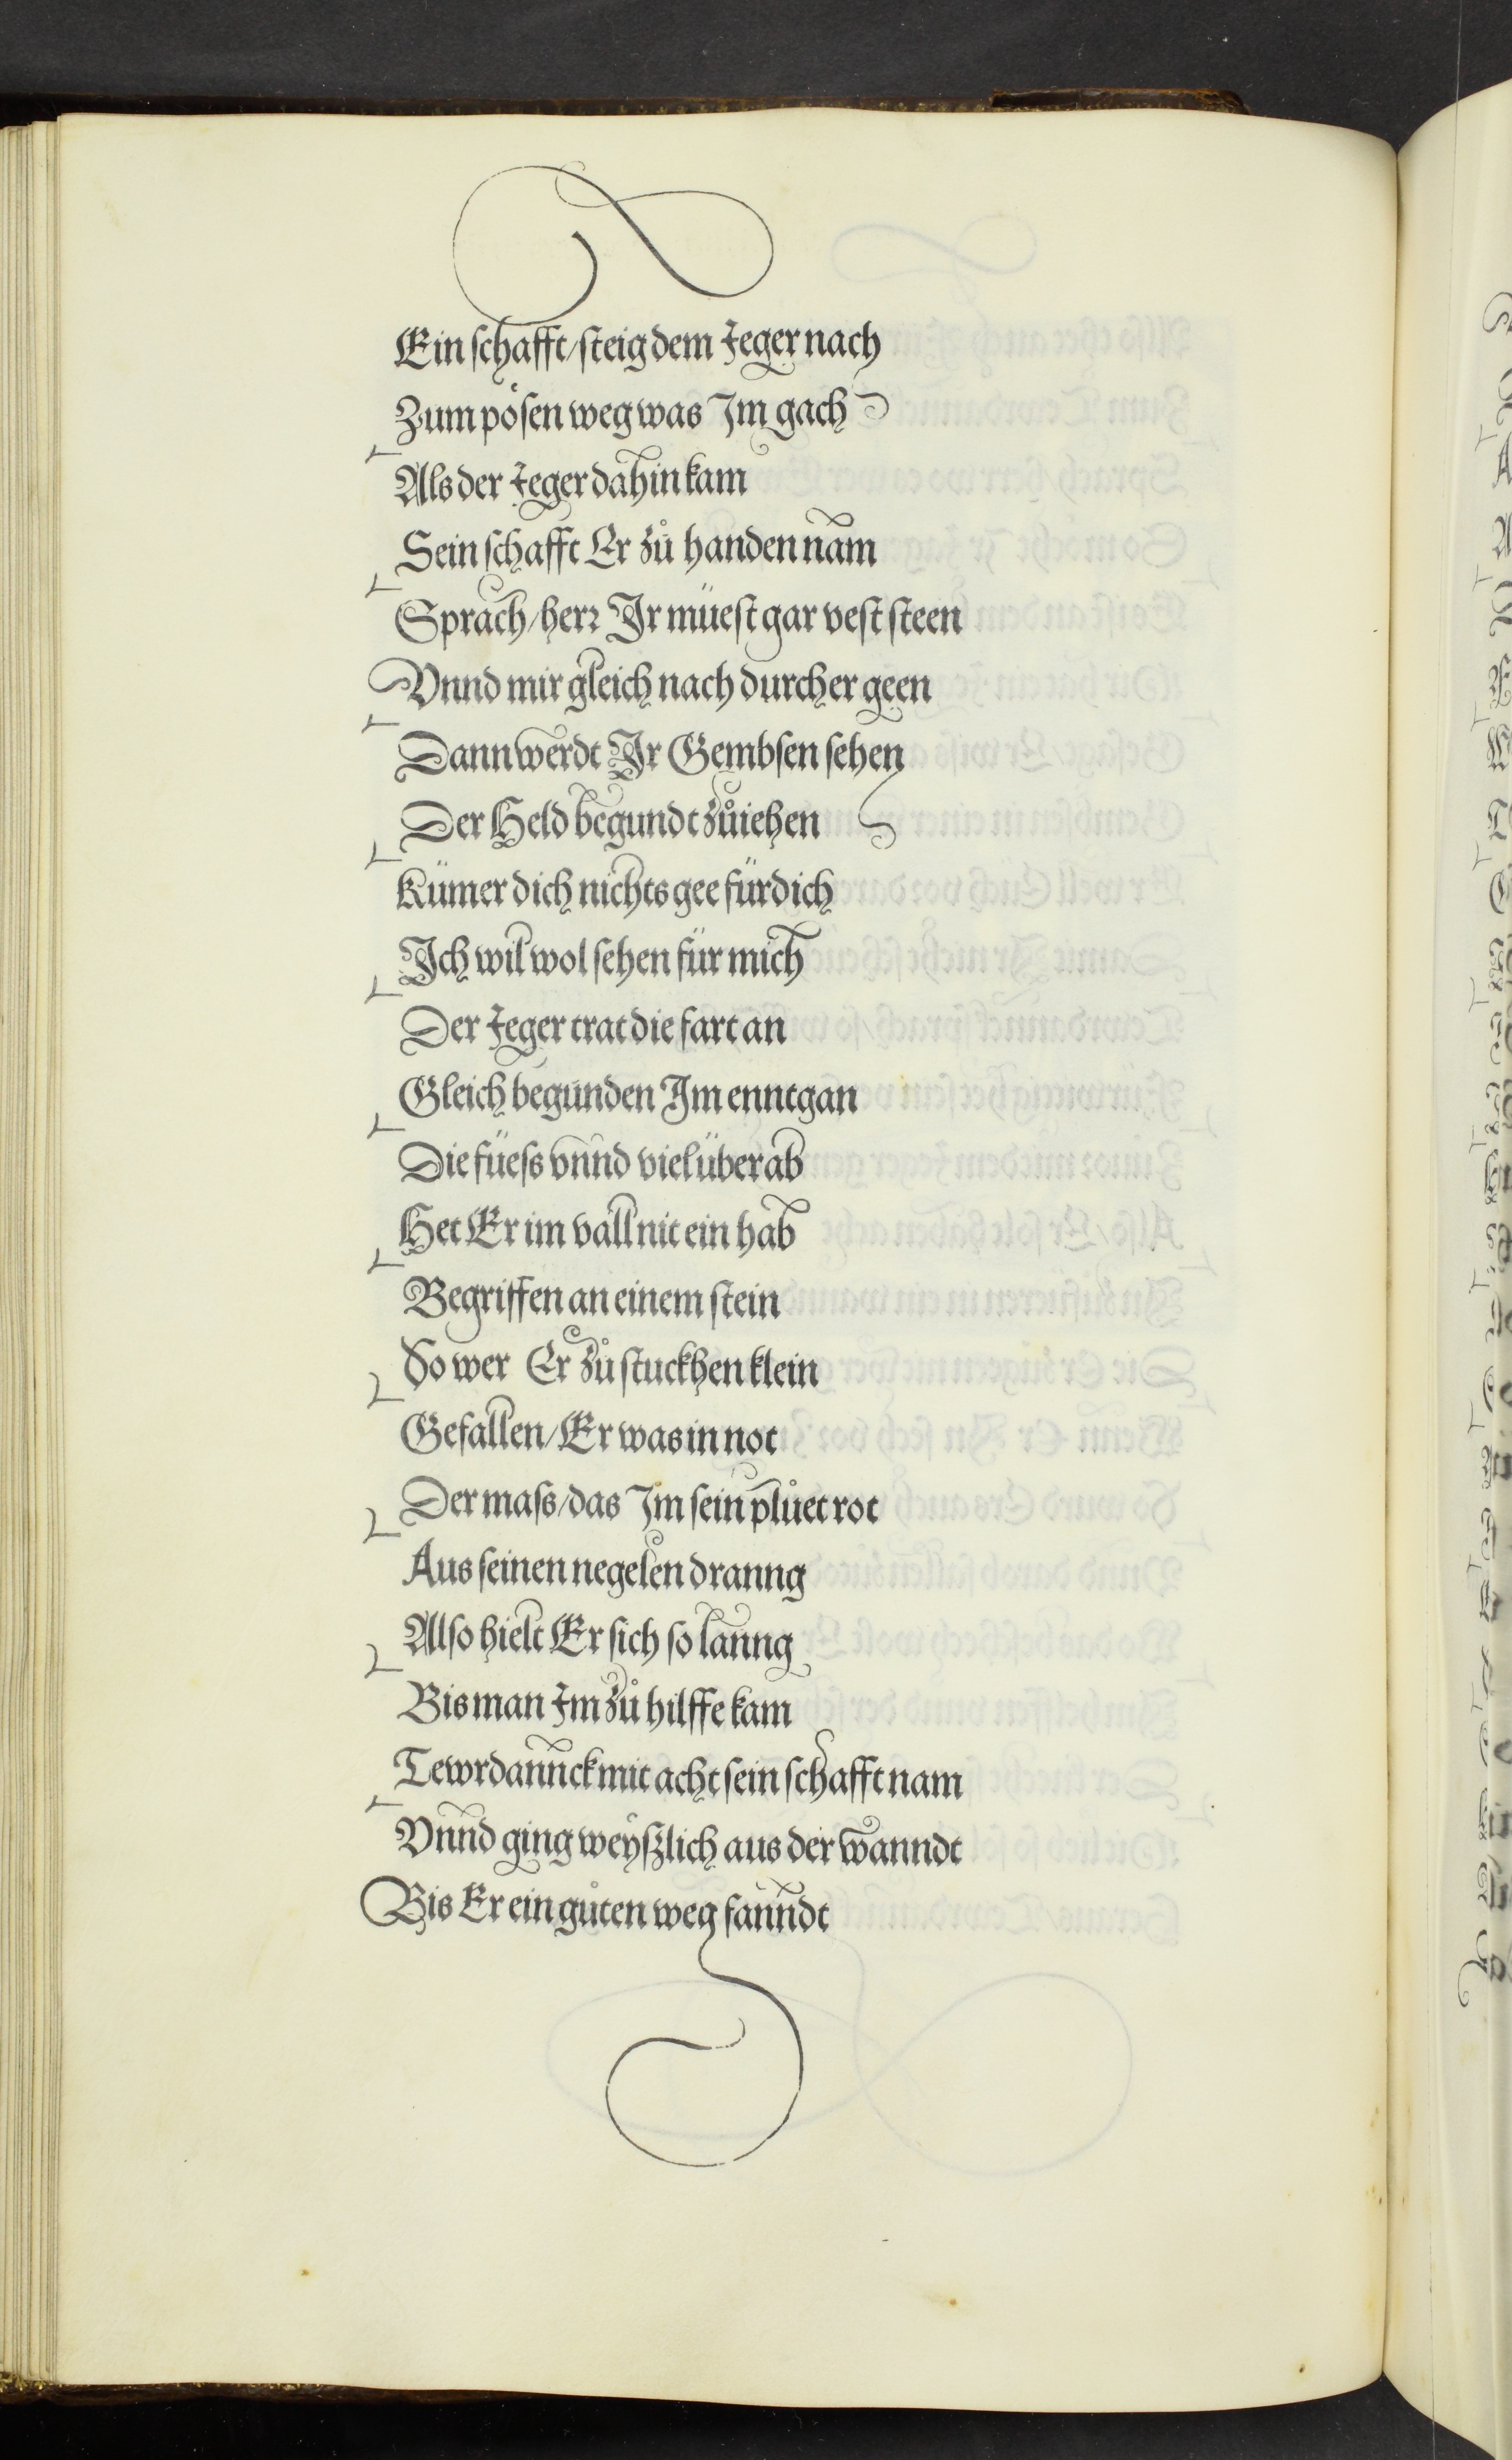 Ein schafft/steig dem Jeger nach
Zum pösen weg was Im gach
Als der Jeger dahin kam
Sein schafft Er zů handen nam
Sprach/herr Ir müest gar vest steen
Vnnd mir gleich nach durcher geen
Dann werdt Ir Gembsen sehen
Der Held begundt zůiehen
Kümer dich nichts gee für dich
Ich wil wol sehen für mich
Der Jeger trat die fart an
Gleich begunden Im enntgan
Die füess vnnd viel über ab
Het Er im vall nit ein hab
Begriffen an einem stein
So wer Er zů stuckhen klein
Gefallen/Er was in not
Der mass/das Im sein plůet rot
Aus seinen negelen dranng
Also hielt Er sich so lanng
Bis man Im zů hilffe kam
Tewrdannck mit acht sein schafft nam
Vnnd ging weyszlich aus der wanndt
Bis Er ein gůten weg fanndt